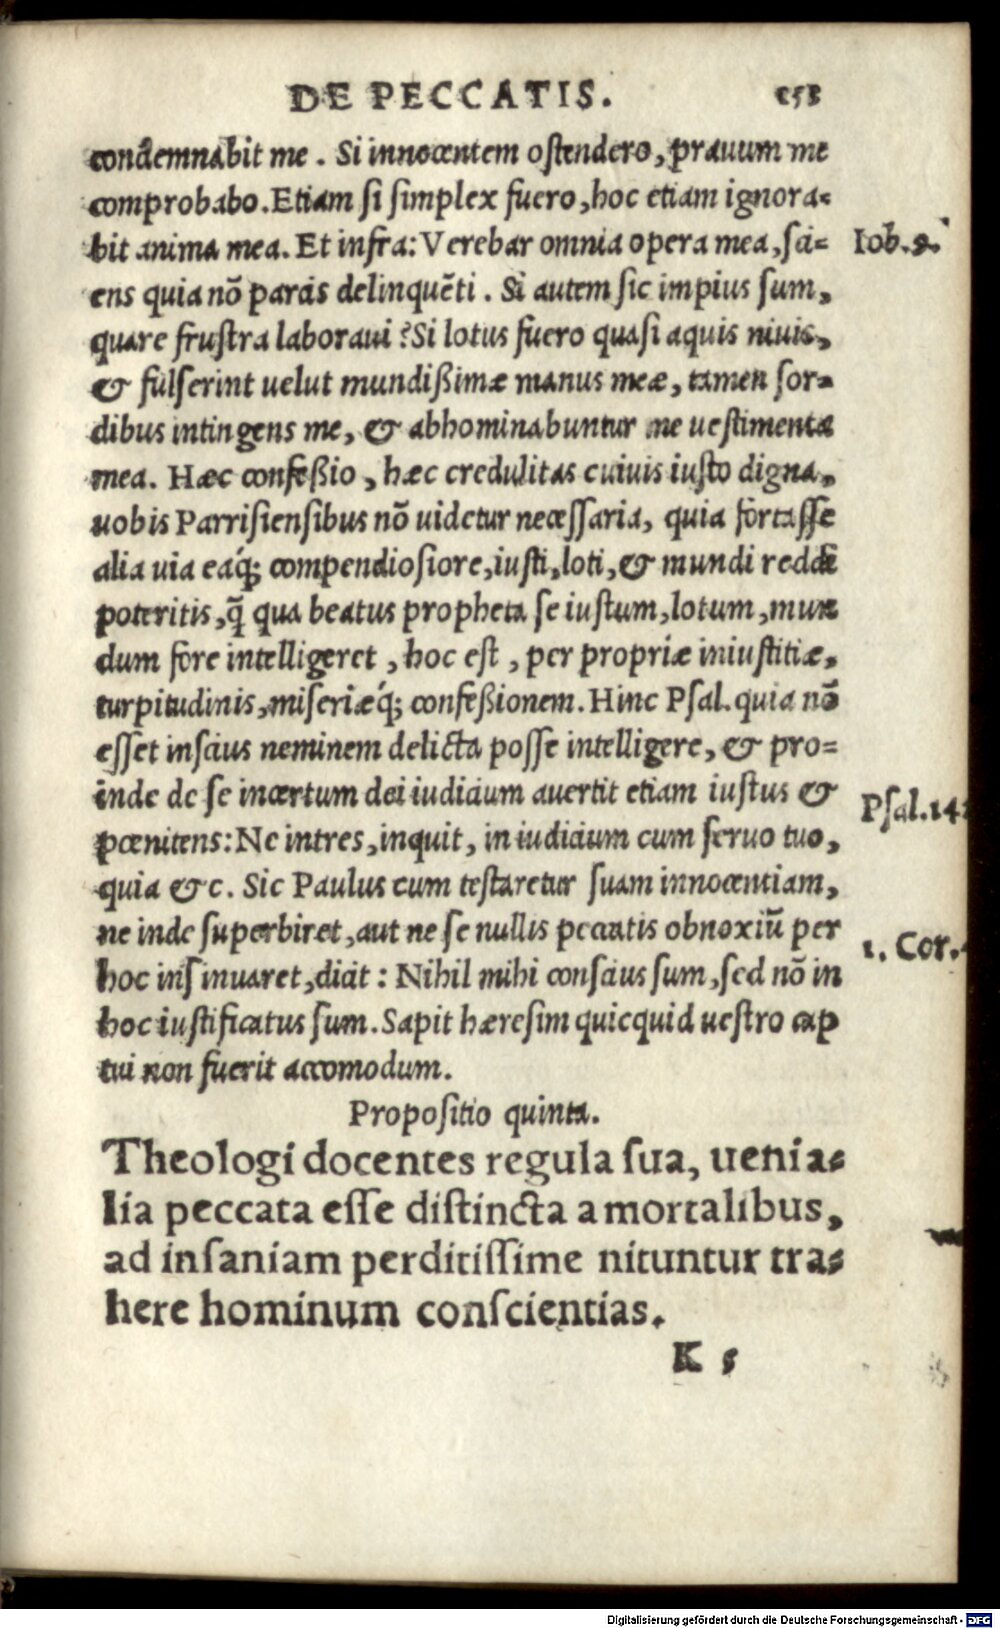 DE PECCATIS. 153
condemnabit me. Si innocentem ostendero, prauum me
comprobabo. Etiam si simplex fuero, hoc etiam ignora-
bit anima mea. Et infra: Verebar omnia opera mea, sci- Iob. 9.
ens quia nō parcis delinquēti. Si autem sic impius sum,
quare frustra laboraui? Si lotus fuero quasi aquis niuis,
& fulserint uelut mundißimæ manus meæ, tamen sor-
dibus intingens me, & abhominabuntur me uestimenta
mea. Hæc confeßio, hæc credulitas cuiuis iusto digna,
uobis Parrisiensibus nō uidetur necessaria, quia fortasse
alia uia eaq́; compendiosiore, iusti, loti, & mundi reddi
poteritis, q̄ qua beatus propheta se iustum, lotum, mun
dum fore intelligeret, hoc est, per propriæ iniustitiæ,
turpitudinis, miseriæq́; confeßionem. Hinc Psal. quia nō
esset inscius neminem delicta posse intelligere, & pro-
inde de se incertum dei iudicium auertit etiam iustus &
pœnitens: Ne intres, inquit, in iudicium cum seruo tuo, Psal. 142
quia &c. Sic Paulus cum testaretur suam innocentiam,
ne inde superbiret, aut ne se nullis peccatis obnoxiū per
hoc insinuaret, dicit: Nihil mihi conscius sum, sed nō in 1. Cor.
hoc iustificatus sum. Sapit hæresim quicquid uestro cap
tui non fuerit accomodum.
Propositio quinta.
Theologi docentes regula sua, uenia-
lia peccata esse distincta a mortalibus,
ad insaniam perditissime nituntur tra-
here hominum conscientias.
K 5
Digitalisierung gefördert durch die Deutsche Forschungsgemeinschaft - DFG